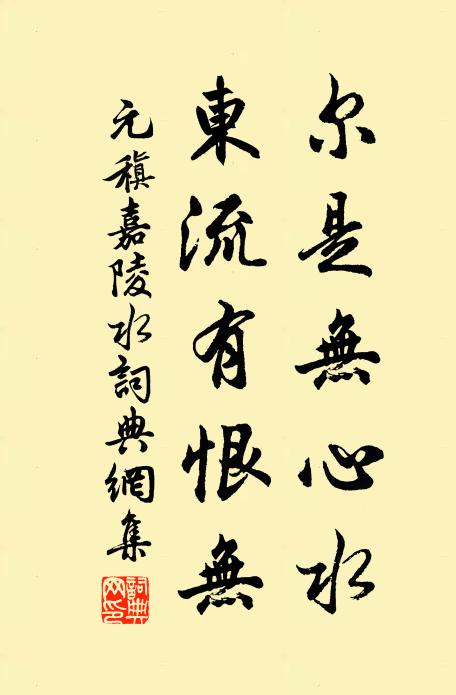 尔是無心水
東流有恨無
元稹嘉陵水詞典網集
詞典網印